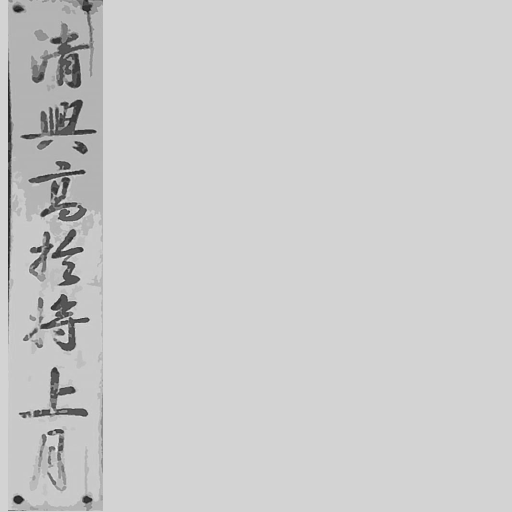 清興高於將上月